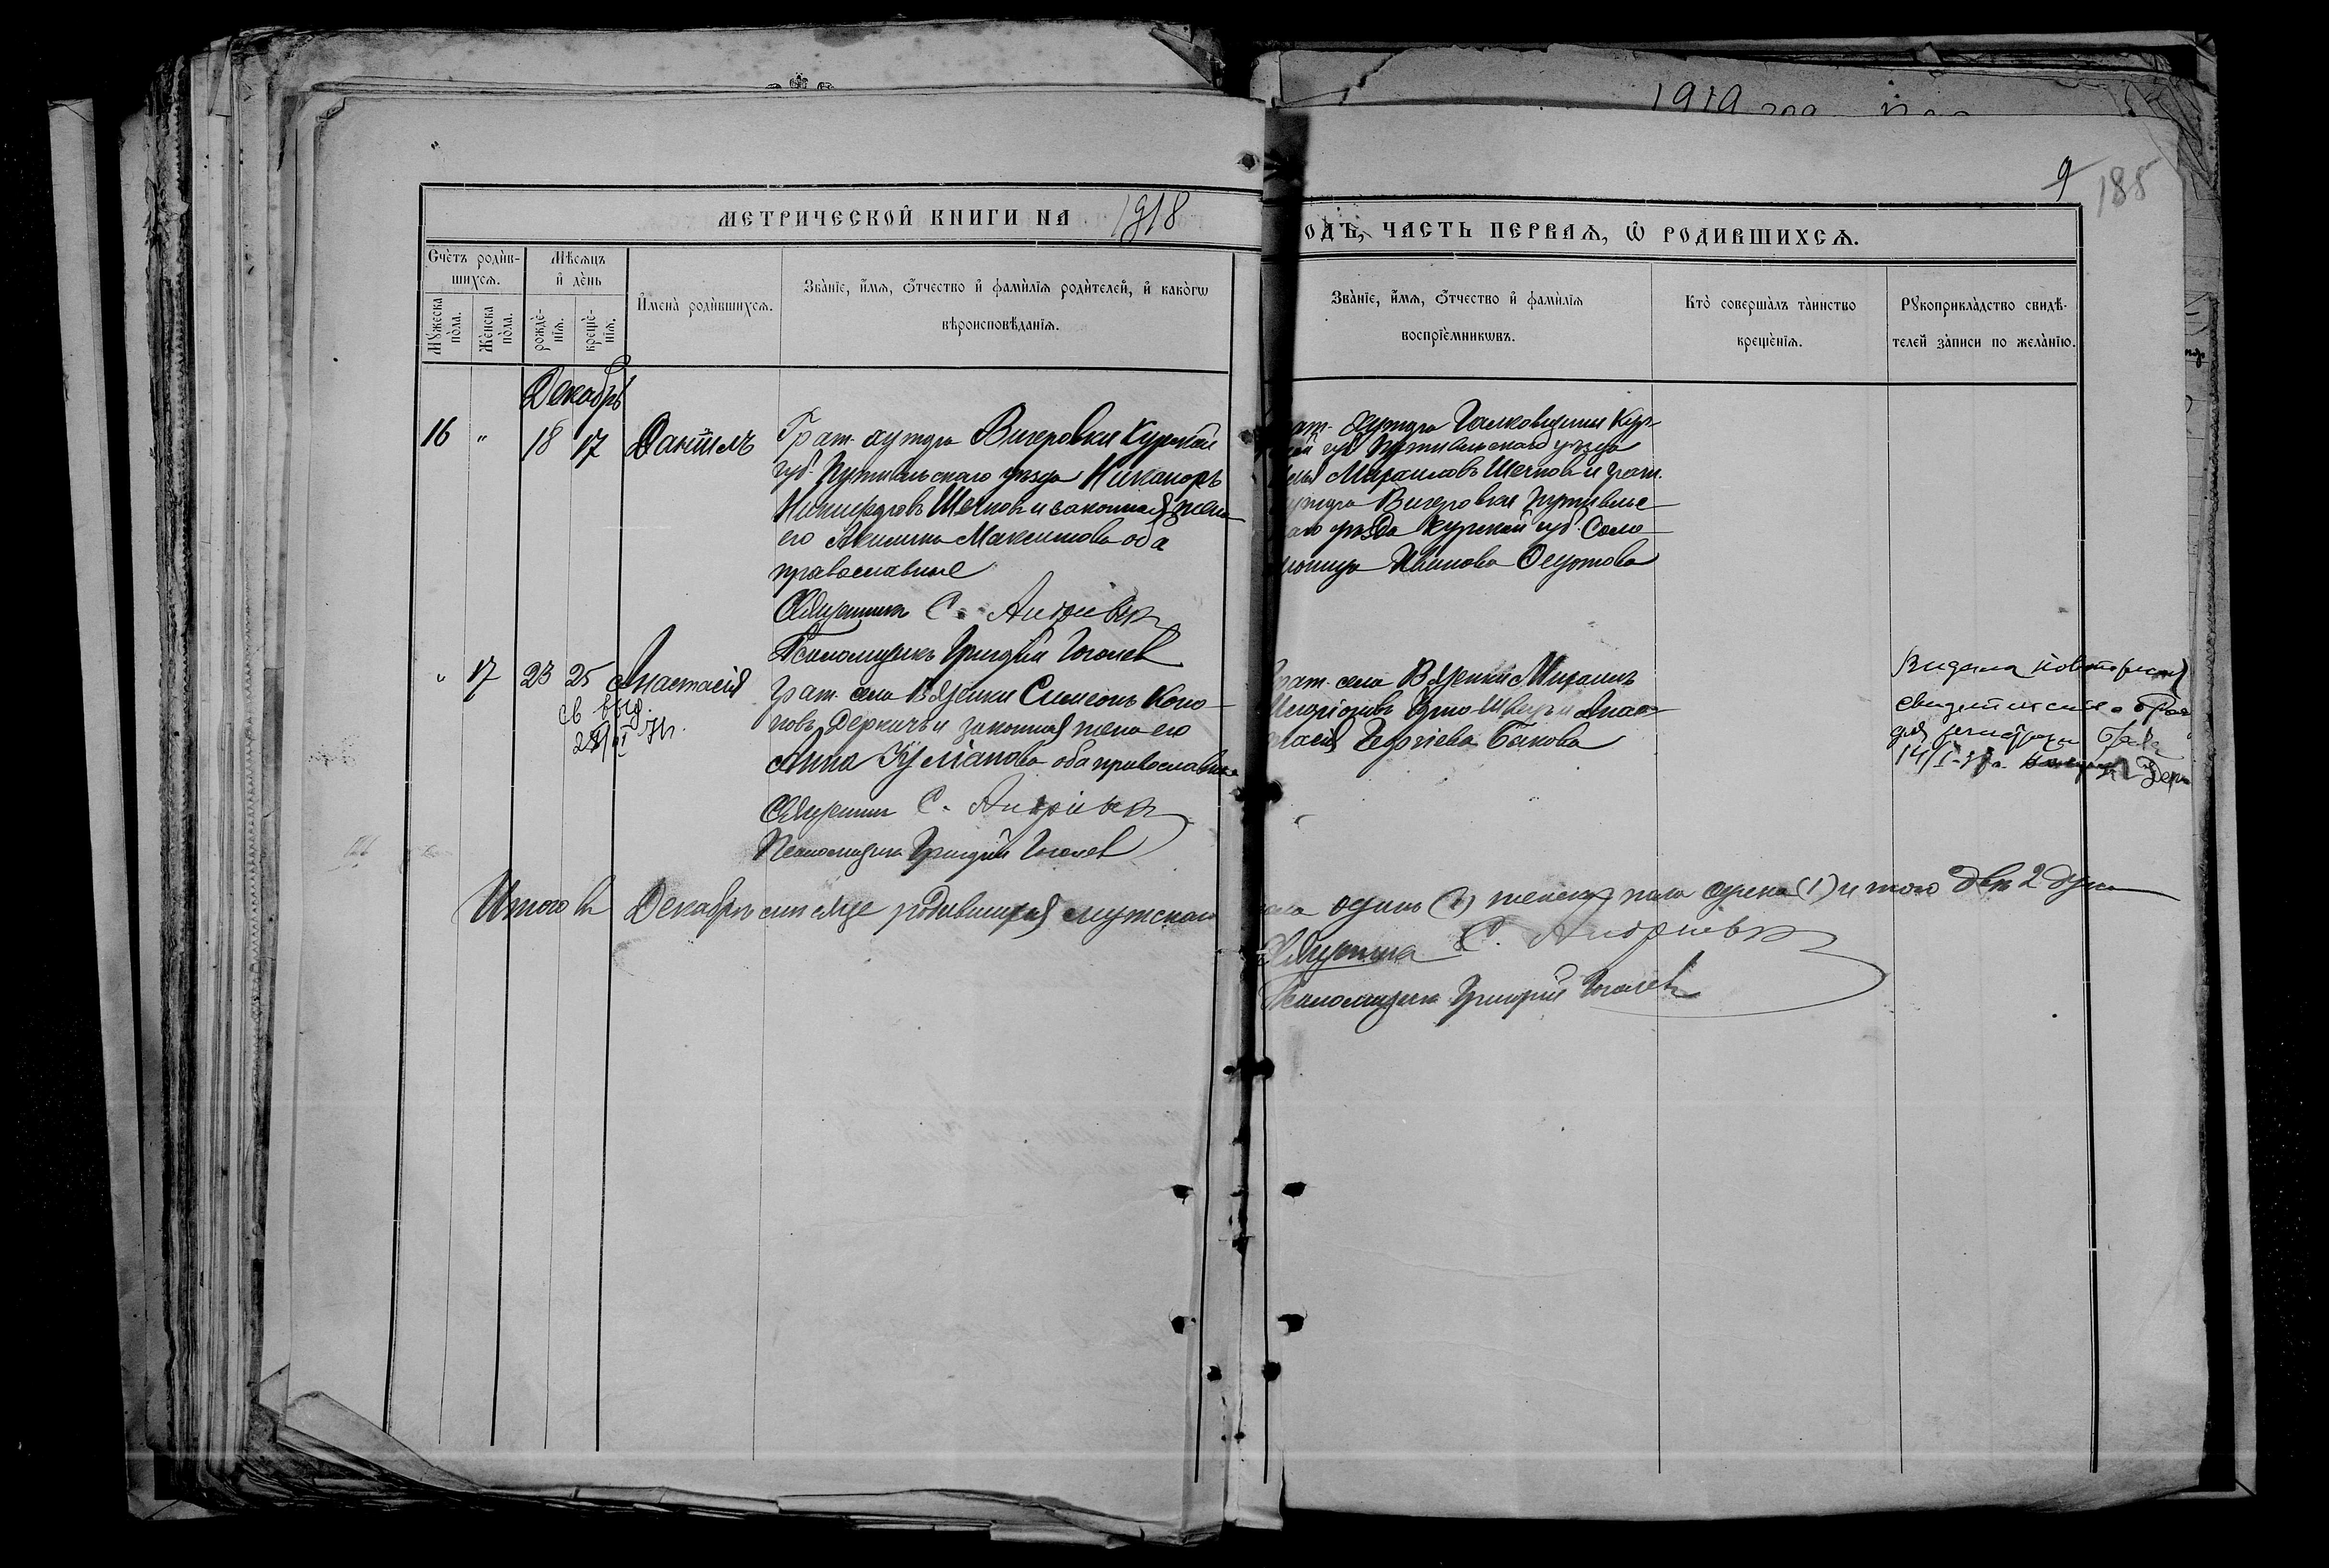 1919
9
185
МЕТРИЧЕСКОЙ КНИГИ НА 1918
ОДЪ, ЧАСТЬ ПЕРВАЯ, Ѡ РОДИВШИХСЯ.
Счетъ родив-
шихся.
Мужеска пола.
Женска пола.
Мѣсяцъ
и день
рожде-
нія.
креще-
нія.
Имена родившихся.
Званіе, имя, отчество и фамилія родителей, и какогѡ
вѣроисповѣданія.
Званіе, имя, отчество и фамилія
воспріемникѡвъ.
Кто совершалъ таинство
крещенія.
Рукоприкладство свидѣ-
телей записи по желанію.
Декабрь
16 " 18 17 Даніилъ
Граж. хутора Вигеровки Курской
губ. Путивльскаго уѣзда Никаноръ
Никифоровъ Шечковъ и законная жена
его Акилина Максимова оба
православные
Священникъ С. Андріевск
Псаломщикъ Григорій Гоголев
аж. хутора Галковщины Кур-
ской губ Путивльскаго уѣзда
Михаиловъ Шечковъ и граж.
хутора Вигеровки Путивльс-
каго уѣзда Курской губ. Соло-
Иванова
" 17 23 25 Анастасія
св выд.
Граж. села Вязенки Симеонъ Коно-
новъ Деркачъ и законная жена его
Анна оба православные
Священник С. Андріевск
Псаломщикъ Григорій Гоголев
раж. села Вязенки Михаилъ
и Анас-
тасія Георгіева Быкова
Видана повторная
свидетельство о
для регистрации брака
Итого въ Декабрѣ мѣсяце родившихся мужскаго
пола одинъ (1) женскаго пола одна (1) итого двѣ 2 души
Священник С. Андріевск
Псаломщикъ Григорій Гоголев